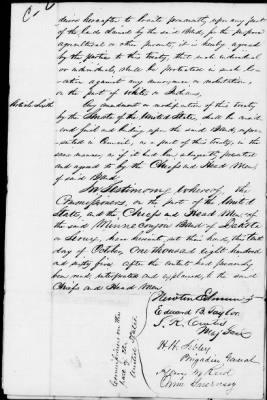 desire hereafter to locate permanently upon any part
of the land claimed by the said Band, for the purpose
agricultural or other pursuits, it is hereby agreed
by the parties to this treaty, that such individual
or individuals, shall be protected in such lo-
cation against any annoyance or molestation,
on the part of whites or Indians,
Article Sixth
Any amendment or modification of this treaty
by the Senate of the United States, shall be consid-
ered final and binding upon the said Band, repre-
sented in Council, as a part of this treaty, in the
same manner as if it had been subsequently presented
and agreed to by the Chiefs and Head Men
of said Band
In Testimony whereof, the
Commissioners, on the part of the United
States, and the Chiefs and Head Men of
the said Minneconjou Band of Dakota
or Sioux, have hereunto set their hands, this tenth
day of October, One thousand eight hundred
and sixty five after the contents had previously
been read, interpreted and explained to the said
Chiefs and Head Men
Newton Edmunds
Edward B. Taylor
S. R. Curtis
Maj Genl
H. H. Sibley
Brigadier General
Henry W Reed
Orrin Guernsey
Commissioners on the
part of the
United States